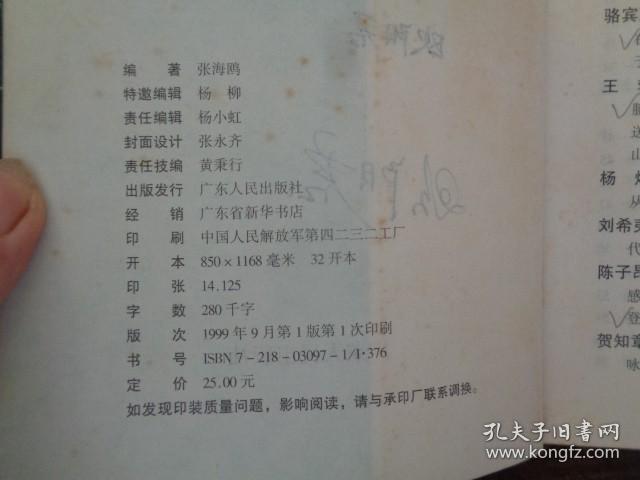 编 著 张海鸥
特邀编辑 杨 柳
责任编辑 杨小虹
封面设计 张永齐
责任技编 黄秉行
出版发行 广东人民出版社
经 销 广东省新华书店
印 刷 中国人民解放军第四二三二工厂
开 本 850×1168 毫米 32 开本
印 张 14.125
字 数 280 千字
版 次 1999 年 9 月第 1 版第 1 次印刷
书 号 ISBN 7－218－03097－1/I·376
定 价 25.00 元
如发现印装质量问题，影响阅读，请与承印厂联系调换。
骆宾
王
杨
从
刘希夷
代
陈子昂
感
登
贺知章
咏
孔夫子旧书网
www.kongfz.com